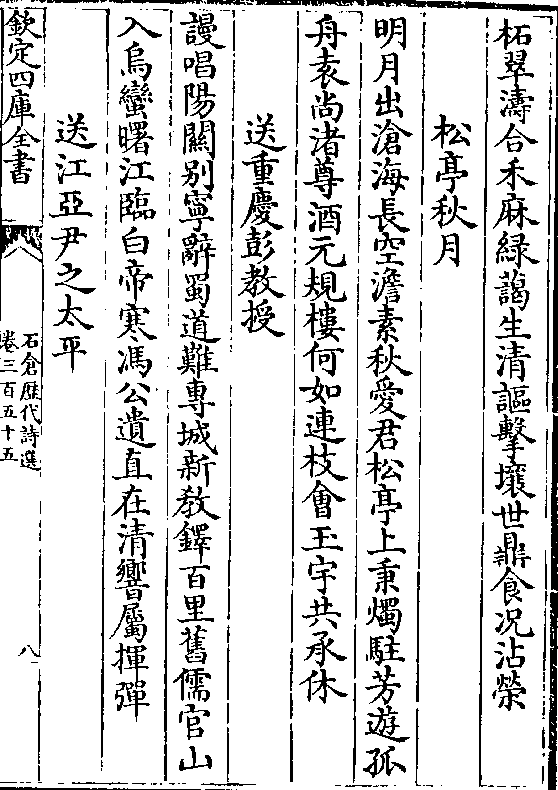 柘翠濤合禾麻緑藹生清謳擊壤世鼎食況沾榮
松亭秋月
明月出滄海長空澹素秋愛君松亭上秉燭駐芳遊孤
舟袁尚渚尊酒元規樓何如連枝會玉宇共承休
送重慶彭教授
謾唱陽關別寧辭蜀道難專城新教鐸百里舊儒官山
入烏蠻曙江臨白帝寒馮公遺直在清響屬揮彈
送江亞尹之太平
欽定四庫全書
石倉歴代詩選
卷三百五十五
八